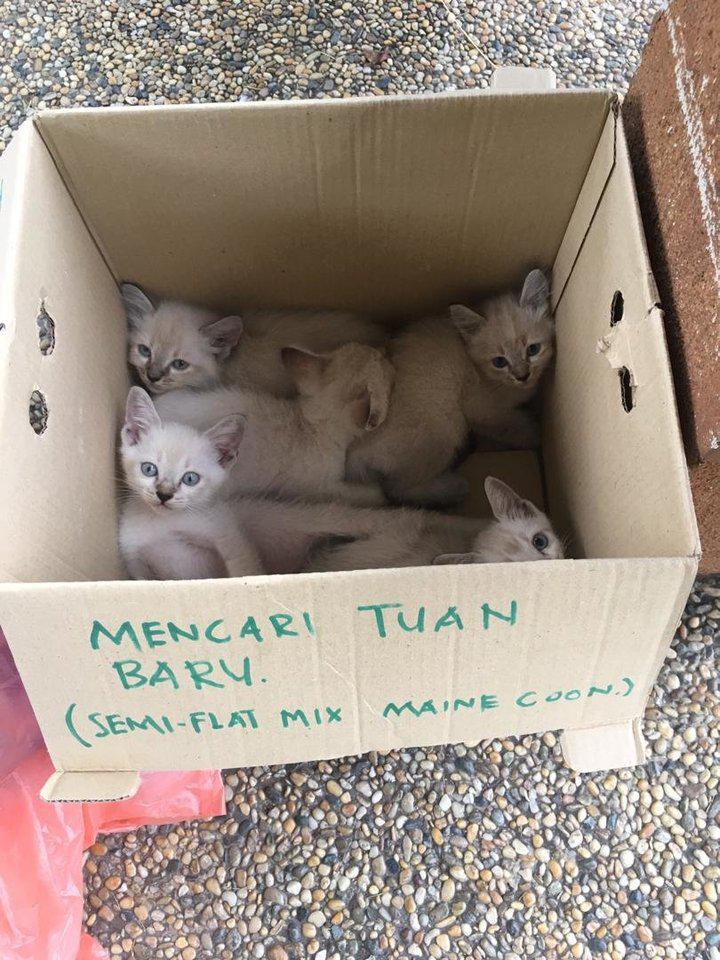 MENCARI TUAN
BARU.
(SEMI-FLAT MIX MAINE COON.)